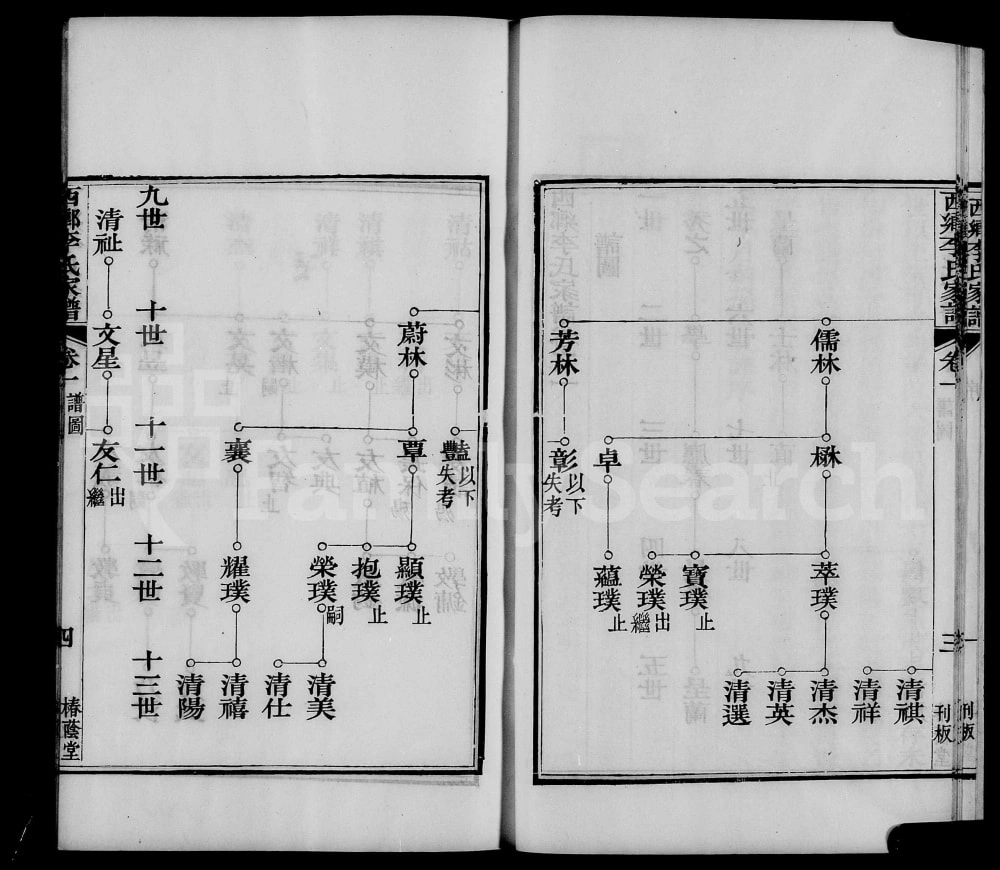 西鄉李氏家譜
卷一
三
刊板
儒林
芳林
楙
卓
彰
以下
失考
萃璞
寶璞
止
榮璞
出
繼
蘊璞
止
清祺
清祥
清杰
清英
清選
蔚林
豔
以下
失考
覃
襄
顯璞
止
抱璞
止
榮璞
嗣
耀璞
清美
清仕
清禧
清陽
九世
十世
十一世
十二世
十三世
清祉
文星
友仁
出
繼
西鄉李氏家譜
卷一
譜圖
四
椿蔭堂
FamilySearch